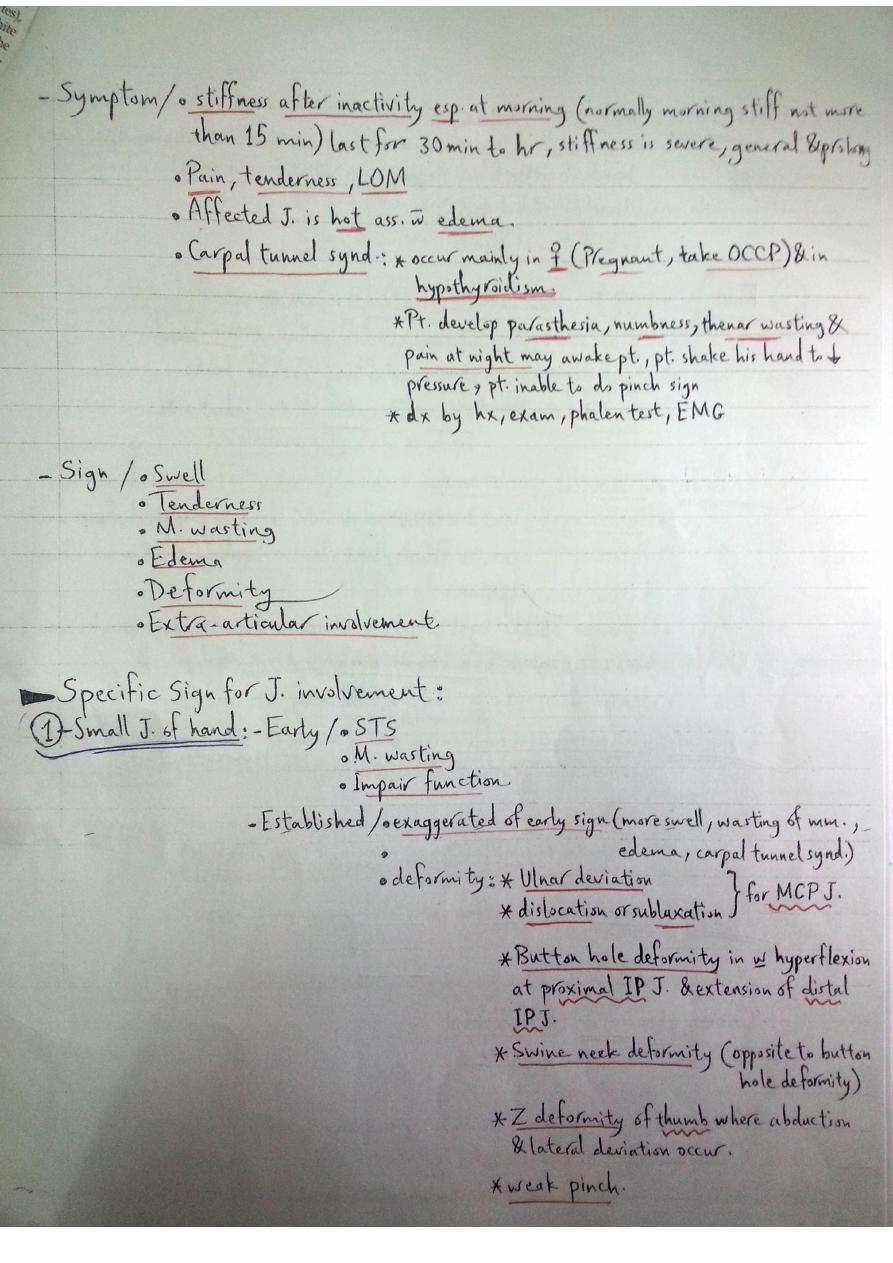 tes),
hite
he
- Symptom/ • stiffness after inactivity esp. at morning (normally morning stiff not more
than 15 min) last for 30min to hr, stiffness is severe, general & prolong
• Pain, tenderness, LOM
• Affected J. is hot ass. w̄ edema.
• Carpal tunnel synd.: * occur mainly in ♀ (Pregnant, take OCCP) & in
hypothyroidism.
* Pt. develop parasthesia, numbness, thenar wasting &
pain at night may awake pt., pt. shake his hand to ↓
pressure, pt. inable to do pinch sign
* dx by hx, exam, phalen test, EMG
- Sign / • Swell
• Tenderness
• M. wasting
• Edema
• Deformity
• Extra-articular involvement
► Specific Sign for J. involvement:
① - Small J. of hand: - Early / • STS
• M. wasting
• Impair function.
- Established / • exaggerated of early sign (more swell, wasting of mm.,
• edema, carpal tunnel synd.)
• deformity: * Ulnar deviation
* dislocation or sublaxation } for MCP J.
* Button hole deformity in w hyperflexion
at proximal IP J. & extension of distal
IP J.
* Swine neek deformity (opposite to button
hole deformity)
* Z deformity of thumb where abduction
& lateral deviation occur.
* weak pinch.